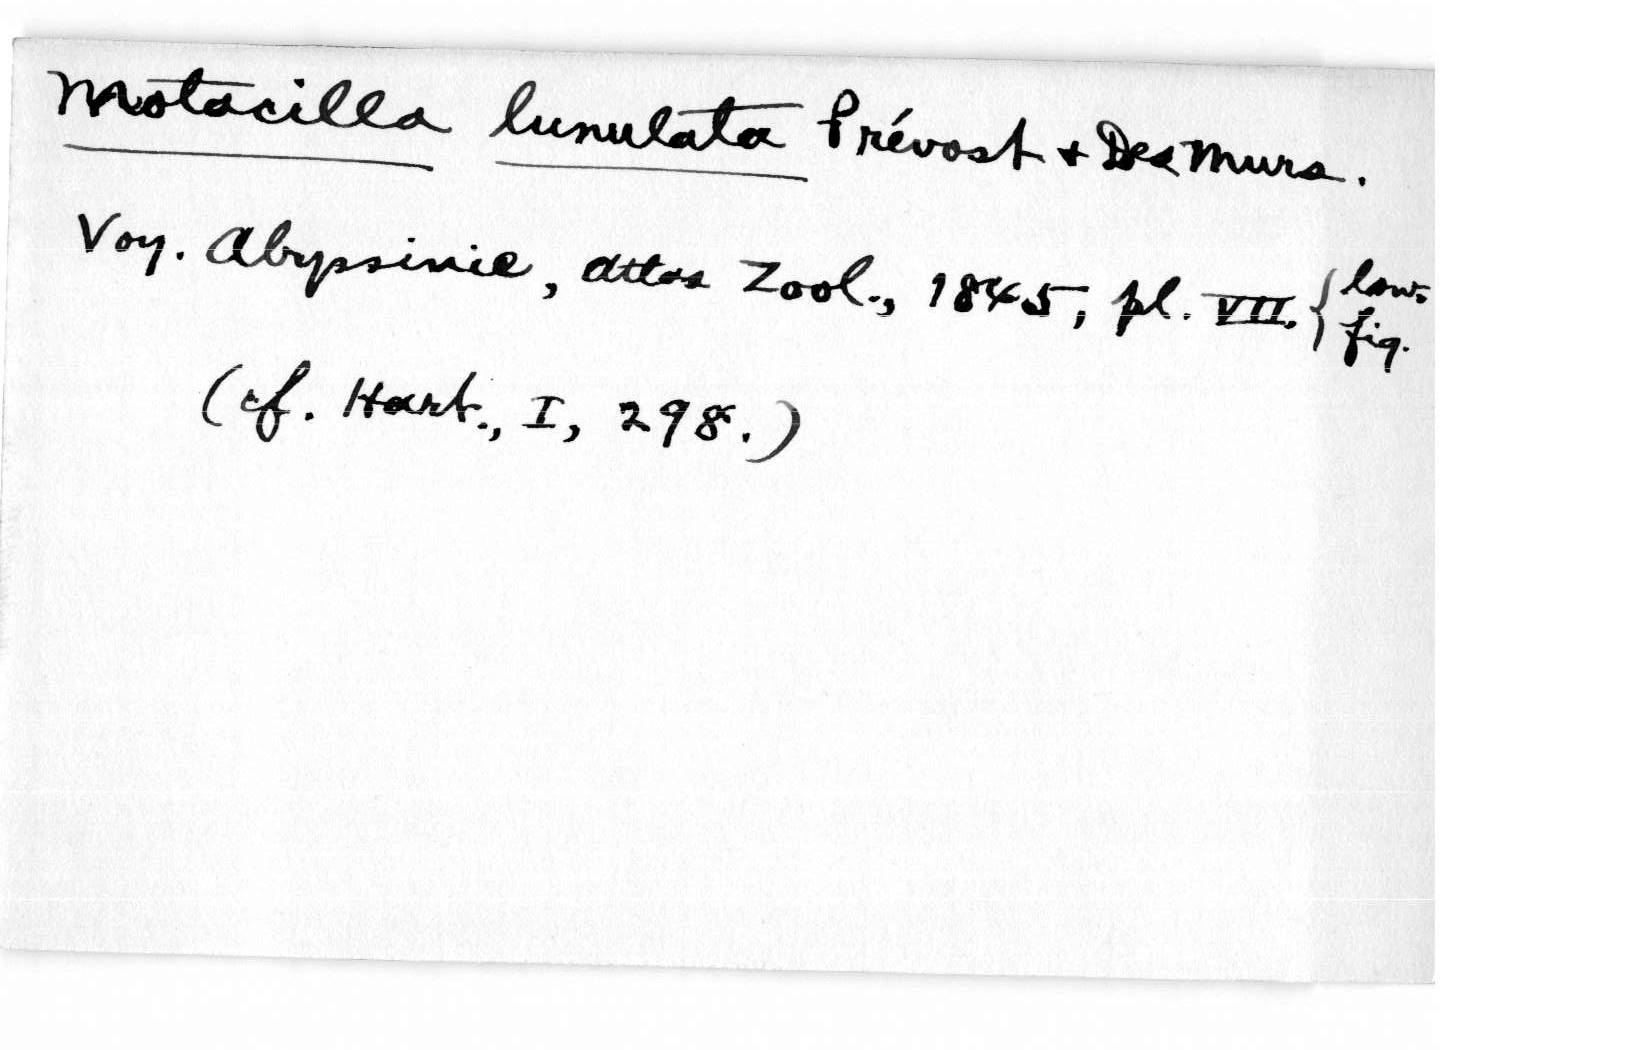 Motacilla lunulata Prévost + Des Murs.
Voy. Abyssinie, Atlas Zool., 1845, pl. VII. { low. fig.
(cf. Hart., I, 298.)